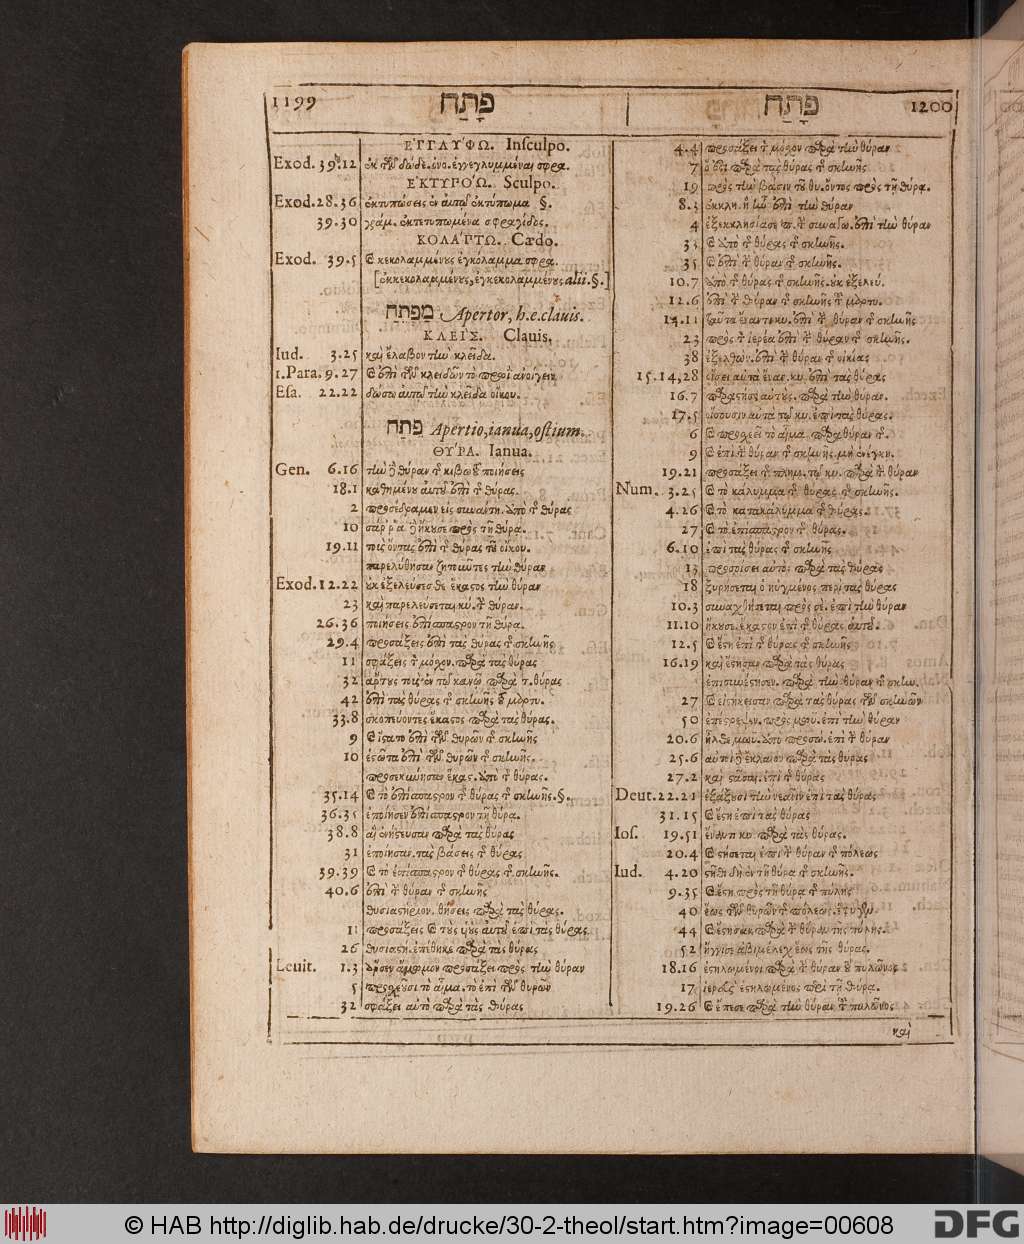 1199 פָּתַח
ΕΓΓΛΥΦΩ. Insculpo.
Exod. 39.12
ΕΚΤΥΠΟΏ. Sculpo.
Exod. 28.36 ἐκτυπώσεις ἐν αὐτῷ ἐκτύπωμα §.
39.30 γράμ. ἐκτετυπωμένα σφραγίδος.
ΚΟΛΑΠΤΩ. Cædo.
Exod. 39.5 κεκολαμμένους ἐγκόλαμμα σφρα.
[ἐκκεκολαμμένους, ἐγκεκολαμμένους alii. §.]
מַפְתֵּחַ Apertor, h. e. clauis.
ΚΛΕΙΣ. Clauis.
Iud. 3.25 καὶ ἔλαβον τὴν κλεῖδα.
1. Para. 9.27 ἐπὶ τῶν κλειδῶν τὸ πρωῒ ἀνοίγειν
Esa. 22.22 δώσω αὐτῷ τὴν κλεῖδα οἴκου.
פֶּתַח Apertio, ianua, ostium.
ΘΥΡΑ. Ianua.
Gen. 6.16 τὴν δὲ θύραν τῆς κιβωτοῦ ποιήσεις
18.1 καθημένου αὐτοῦ ἐπὶ τῆς θύρας.
2 προσέδραμεν εἰς συναντη. ἀπὸ τῆς θύρας
10 σάῤῥα δὲ ἤκουσε πρὸς τῇ θύρᾳ.
19.11 τοὺς ὄντας ἐπὶ τῆς θύρας τοῦ οἴκου.
παρελύθησαν ζητοῦντες τὴν θύραν
Exod. 12.22 οὐκ ἐξελεύσεσθε ἕκαστος τὴν θύραν
23 καὶ παρελεύσεται κύ. τὴν θύραν.
26.36 ποιήσεις ἐπίσπαστρον τῇ θύρᾳ.
29.4 προσάξεις ἐπὶ τὰς θύρας τῆς σκηνῆς
11 σφάξεις τὸν μόσχον. παρὰ τὰς θύρας
32 ἄρτους τοὺς ἐν τῷ κανῷ παρὰ τ. θύρας
42 ἐπὶ τὰς θύρας τῆς σκηνῆς τοῦ μαρτυ.
33.8 σκοπεύοντες ἕκαστος παρὰ τὰς θύρας.
9 ἵστατο ἐπὶ τῶν θυρῶν τῆς σκηνῆς
10 ἑστῶτα ἐπὶ τῶν θυρῶν τῆς σκηνῆς.
προσεκύνησαν ἕκας. ἀπὸ τῆς θύρας.
35.14 τὸ ἐπίσπαστρον τῆς θύρας τῆς σκηνῆς. §.
36.35 ἐποίησεν ἐπίσπαστρον τῇ θύρᾳ.
38.8 αἳ ἐνήστευσαν παρὰ τὰς θύρας
31 ἐποίησαν. τὰς βάσεις τῆς θύρας
39.39 τὸ ἐπίσπαστρον τῆς θύρας τῆς σκηνῆς.
40.6 ἐπὶ τῆς θύραν τῆς σκηνῆς
θυσιαστήριον. θήσεις παρὰ τὰς θύρας.
11 προσάξεις τοὺς υἱοὺς αὐτοῦ ἐπὶ τὰς θύρας.
26 θυσιαστή. ἐπέθηκε παρὰ τὰς θύρας
Leuit. 1.3 ἄρσεν ἄμωμον προσάξει πρὸς τὴν θύραν
5 προσχεοῦσι τὸ αἷμα. τὸ ἐπὶ τῶν θυρῶν
32 σφάξει αὐτὸ παρὰ τὰς θύρας
פָּתַח 1200
4.4 προσάξει τὸν μόσχον παρὰ τὴν θύραν
7 ὅ ἐστι παρὰ τὰς θύρας τῆς σκηνῆς
19 πρὸς τὴν βάσιν τοῦ θυ. ὄντος πρὸς τῇ θύρᾳ.
8.3 ἐπὶ τὴν θύραν
4 ἐπὶ τὴν θύραν
33 ἀπὸ τῆς θύρας τῆς σκηνῆς.
35 ἐπὶ τὴν θύραν τῆς σκηνῆς.
10.7 ἀπὸ τῆς θύρας τῆς σκηνῆς. οὐκ ἐξελεύ.
12.6 ἐπὶ τὴν θύραν τῆς σκηνῆς τοῦ μαρτυ.
14.11 ταῦτα ἔναντι κυ. ἐπὶ τὴν θύραν τῆς σκηνῆς
23 πρὸς τὸν ἱερέα ἐπὶ τὴν θύραν τῆς σκηνῆς.
38 ἐξελθὼν. ἐπὶ τὴν θύραν τῆς οἰκίας
15.14,28 οἴσει αὐτὰ ἔναν. κυ. ἐπὶ τὰς θύρας
16.7 παραστήσει αὐτούς. παρὰ τὴν θύραν.
17.5 οἴσουσιν αὐτὰ τῷ κυ. ἐπὶ τὰς θύρας.
6 προσχεεῖ τὸ αἷμα. παρὰ θύραν τῆς.
9 ἐπὶ τὴν θύραν τῆς σκηνῆς. μὴ ἐνέγκῃ.
19.21 προσάξει τῆς πλημ. τῷ κυ. παρὰ τὴν θύραν
Num. 3.25 τὸ κάλυμμα τῆς θύρας τῆς σκηνῆς.
4.26 τὸ κατακάλυμμα τῆς θύρας.
27 τὸ ἐπίσπαστρον τῆς θύρας.
6.10 ἐπὶ τὰς θύρας τῆς σκηνῆς
13 προσοίσει αὐτὸς παρὰ τὰς θύρας
18 ξυρήσεται ὁ ηὐγμένος περὶ τὰς θύρας
10.3 συναχθήσεται πρὸς σέ. ἐπὶ τὴν θύραν
11.10 ἤκουσε. ἕκαστον ἐπὶ τῆς θύρας αὐτοῦ.
12.5 ἔστη ἐπὶ τῆς θύρας τῆς σκηνῆς
16.19 καὶ ἔστησαν παρὰ τὰς θύρας
ἐπισυνέστησεν. παρὰ τὴν θύραν τῆς σκην.
27 εἱστήκεισαν παρὰ τὰς θύρας τῶν σκηνῶν
50 ἐπέστρεψεν. πρὸς μωυ. ἐπὶ τὴν θύραν
20.6 ἦλθε μωυ. ἀπὸ προσώ. ἐπὶ τὴν θύραν
25.6 αὐτοὶ δὲ ἔκλαιον παρὰ τὰς θύρας
27.2 καὶ στᾶσαι. ἐπὶ τῆς θύρας
Deut. 22.21 ἐξάξουσι τὴν νεᾶνιν ἐπὶ τὰς θύρας
31.15 ἔστη ἐπὶ τὰς θύρας
Ios. 19.51 ἔναντι κυ. παρὰ τὰς θύρας.
20.4 στήσεται ἐπὶ τὴν θύραν τῆς πόλεως
Iud. 4.20 στῆθι δὴ ἐν τῇ θύρᾳ τῆς σκηνῆς.
9.35 ἔστη πρὸς τῇ θύρᾳ τῆς πύλης
40 ἕως τῶν θυρῶν τῆς πόλεως.
44 ἔστησαν παρὰ τὴν θύραν τῆς πύλης.
52 ἤγγισε ἀβιμέλεχ ἕως τῆς θύρας.
18.16 ἐστηλωμένοι παρὰ τὴν θύραν τοῦ πυλῶνος
17 ἱερεὺς ἐστηλωμένος παρὰ τῇ θύρᾳ.
19.26 ἔπεσε παρὰ τὴν θύραν τοῦ πυλῶνος
καὶ
© HAB http://diglib.hab.de/drucke/30-2-theol/start.htm?image=00608
DFG